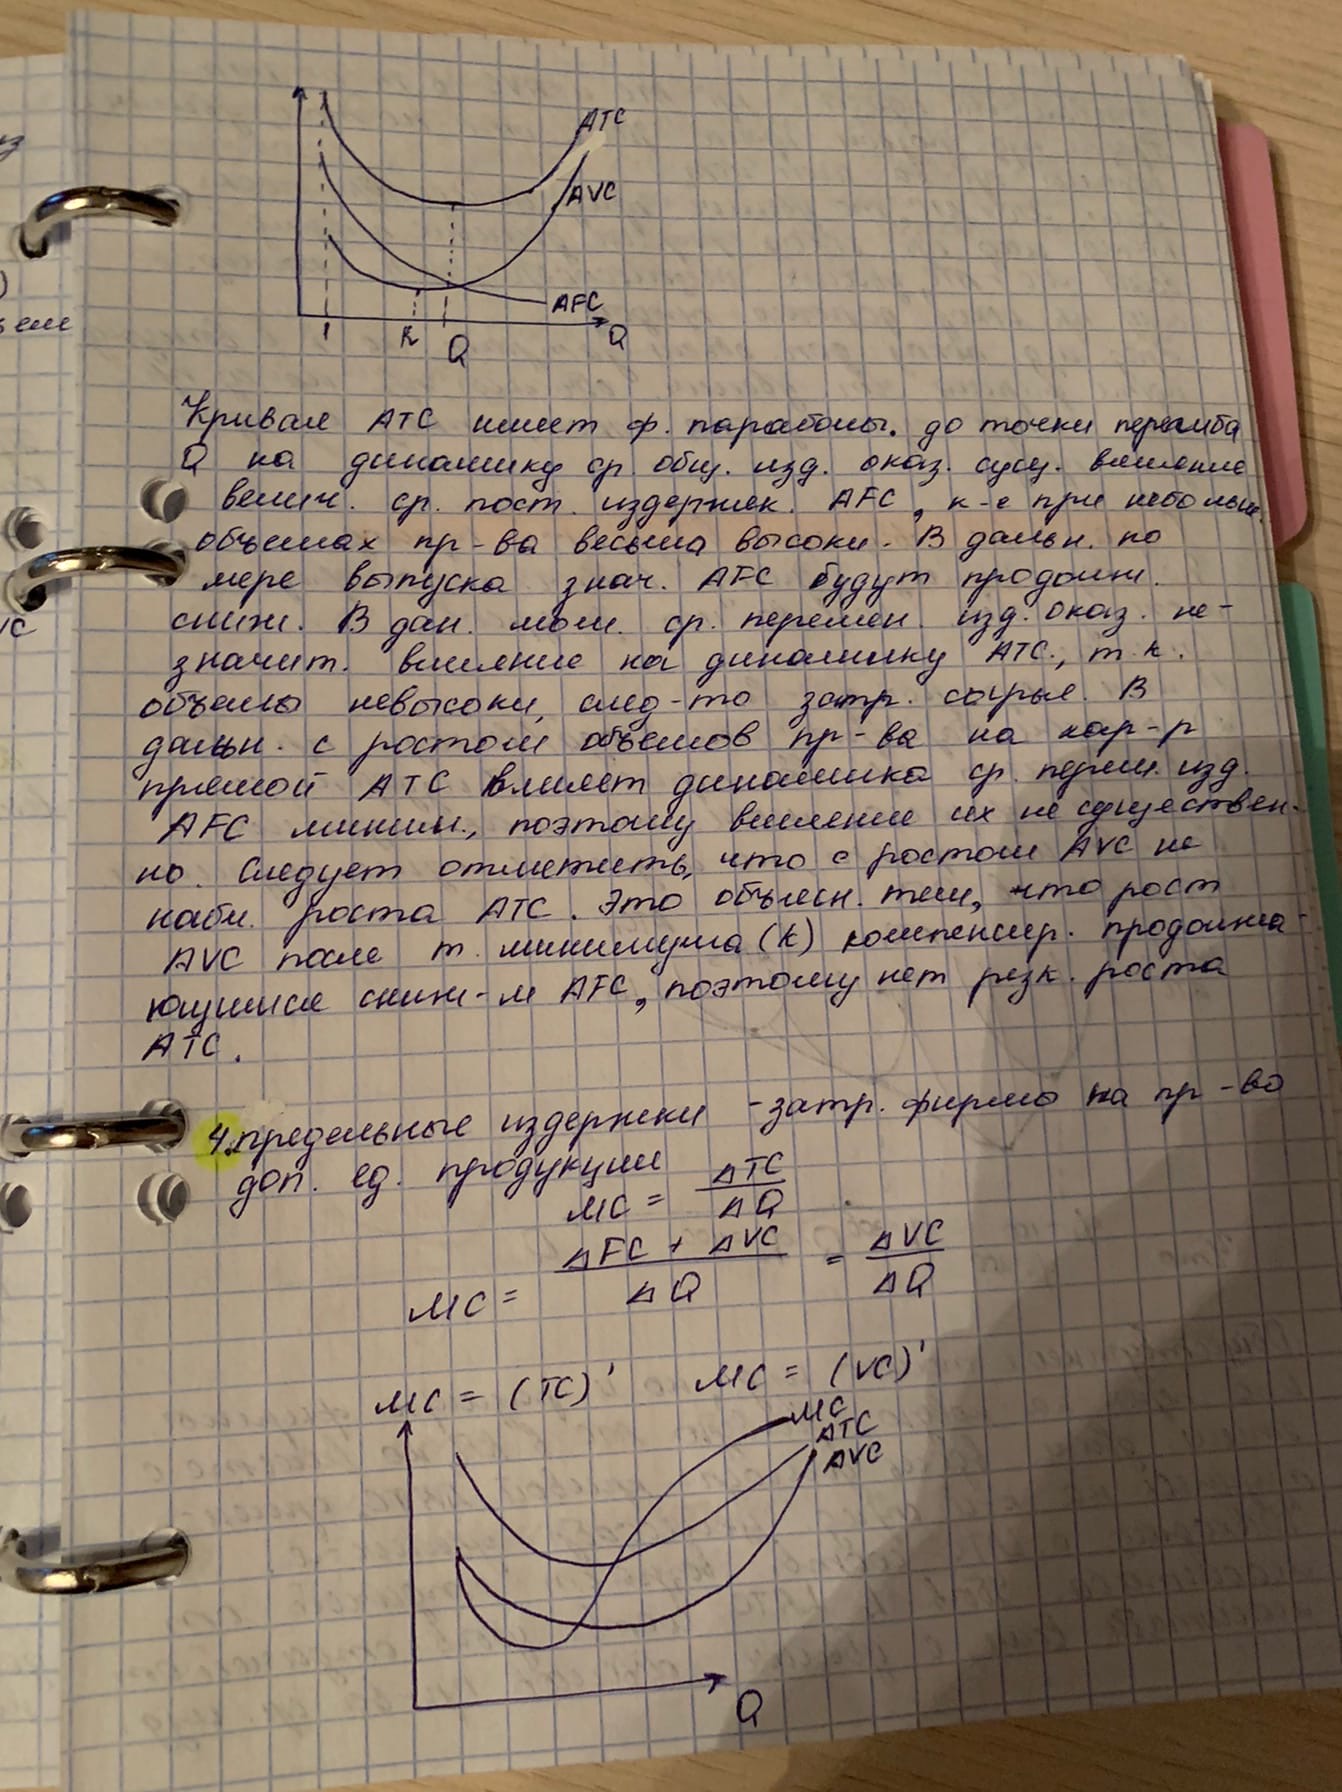 ATC
AVC
AFC
1 K Q Q
Кривая ATC имеет ф. параболы. до точки перегиба
Q на динамику ср. общ. изд. оказ. сущ. влияние
велич. ср. пост. издержек. AFC, к-е при небольш.
объемах пр-ва весьма высоки. В дальн. по
мере выпуска знач. AFC будут продолж.
сниж. В дан. мом. ср. перемен. изд. оказ. не-
значит. влияние на динамику ATC, т.к.
объемы невысоки, след-но затр. сырья. В
дальн. с ростом объемов пр-ва на хар-р
прямой ATC влияет динамика ср. перем. изд.
AFC миним., поэтому влияние их не существен-
но. Следует отметить, что с ростом AVC не
набл. роста ATC. Это объясн. тем, что рост
AVC после т. минимума (K) компенсир. продолжа-
ющимся сниж-м AFC, поэтому нет резк. роста
ATC.
4. предельные издержки - затр. фирмы на пр-во
доп. ед. продукции
MC = ΔTC / ΔQ
MC = ΔFC + ΔVC / ΔQ = ΔVC / ΔQ
MC = (TC)' MC = (VC)'
MC
ATC
AVC
Q